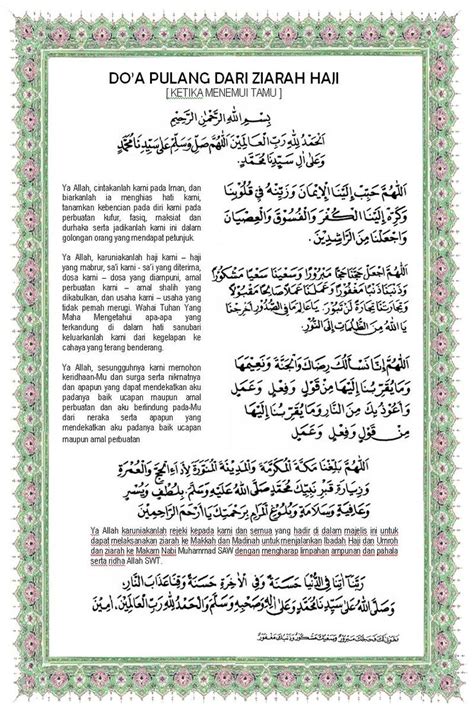 DO'A PULANG DARI ZIARAH HAJI
[ KETIKA MENEMUI TAMU ]
بِسْمِ اللهِ الرَّحْمٰنِ الرَّحِيْمِ
اَلْحَمْدُ لِلّٰهِ رَبِّ الْعَالَمِيْنَ اَللّٰهُمَّ صَلِّ وَسَلِّمْ عَلٰى سَيِّدِنَا مُحَمَّدٍ
وَعَلٰى اٰلِ سَيِّدِنَا مُحَمَّدٍ.
Ya Allah, cintakanlah kami pada Iman, dan
biarkanlah ia menghias hati kami,
tanamkan kebencian pada diri kami pada
perbuatan kufur, fasiq, maksiat dan
durhaka serta jadikanlah kami ini dalam
golongan orang yang mendapat petunjuk.
اَللّٰهُمَّ حَبِّبْ اِلَيْنَا الْاِيْمَانَ وَزَيِّنْهُ فِيْ قُلُوْبِنَا
وَكَرِّهْ اِلَيْنَا الْكُفْرَ وَالْفُسُوْقَ وَالْعِصْيَانَ
وَاجْعَلْنَا مِنَ الرَّاشِدِيْنَ.
Ya Allah, karuniakanlah haji kami – haji
yang mabrur, sa'i kami - sa'i yang diterima,
dosa kami – dosa yang diampuni, amal
perbuatan kami – amal shalih yang
dikabulkan, dan usaha kami – usaha yang
tidak pernah merugi. Wahai Tuhan Yang
Maha Mengetahui apa-apa yang
terkandung di dalam hati sanubari
keluarkanlah kami dari kegelapan ke
cahaya yang terang benderang.
اَللّٰهُمَّ اجْعَلْ حَجَّنَا حَجًّا مَبْرُوْرًا وَسَعْيَنَا سَعْيًا مَشْكُوْرًا
وَتِجَارَتَنَا تِجَارَةً لَنْ تَبُوْرَ. يَا عَالِمَ مَا فِي الصُّدُوْرِ اَخْرِجْنَا
يَا اَللهُ مِنَ الظُّلُمَاتِ اِلَى النُّوْرِ.
Ya Allah, sesungguhnya kami memohon
keridhaan-Mu dan surga serta nikmatnya
dan apapun yang dapat mendekatkan aku
padanya baik ucapan maupun amal
perbuatan dan aku berlindung pada-Mu
dari neraka serta apapun yang
mendekatkan aku padanya baik ucapan
maupun amal perbuatan
اَللّٰهُمَّ اِنَّا نَسْأَلُكَ رِضَاكَ وَالْجَنَّةَ وَنَعِيْمَهَا
وَمَا يُقَرِّبُنَا اِلَيْهَا مِنْ قَوْلٍ وَفِعْلٍ وَعَمَلٍ
وَاَعُوْذُ بِكَ مِنَ النَّارِ وَمَا يُقَرِّبُنَا اِلَيْهَا
مِنْ قَوْلٍ وَفِعْلٍ وَعَمَلٍ
اَللّٰهُمَّ بَلِّغْنَا مَكَّةَ الْمُكَرَّمَةَ وَالْمَدِيْنَةَ الْمُنَوَّرَةَ لِاَدَاءِ الْحَجِّ وَالْعُمْرَةِ
وَزِيَارَةِ قَبْرِ نَبِيِّكَ مُحَمَّدٍ صَلَّى اللهُ عَلَيْهِ وَسَلَّمَ بِلُطْفٍ وَيُسْرٍ
وَعَافِيَةٍ وَسَلَامَةٍ وَبُلُوْغِ الْمَرَامِ بِرَحْمَتِكَ يَا اَرْحَمَ الرَّاحِمِيْنَ
Ya Allah karuniakanlah rejeki kepada kami dan semua yang hadir di dalam majelis ini untuk
dapat melaksanakan ziarah ke Makkah dan Madinah untuk menjalankan Ibadah Haji dan Umroh
dan ziarah ke Makam Nabi Muhammad SAW dengan mengharap limpahan ampunan dan pahala
serta ridha Allah SWT.
رَبَّنَا اٰتِنَا فِي الدُّنْيَا حَسَنَةً وَفِي الْاٰخِرَةِ حَسَنَةً وَقِنَا عَذَابَ النَّارِ.
وَصَلَّى اللهُ عَلٰى سَيِّدِنَا مُحَمَّدٍ وَعَلٰى اٰلِهِ وَصَحْبِهِ وَسَلَّمَ وَالْحَمْدُ لِلّٰهِ رَبِّ الْعَالَمِيْنَ. اٰمِيْنَ